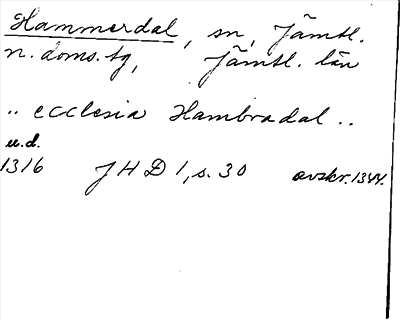 Hammerdal, sn, Jämtl.
n. doms. tg, Jämtl. län
.. ecclesia Hambradal ..
u.d.
1316 JHD 1, s. 30 avskr. 1344.